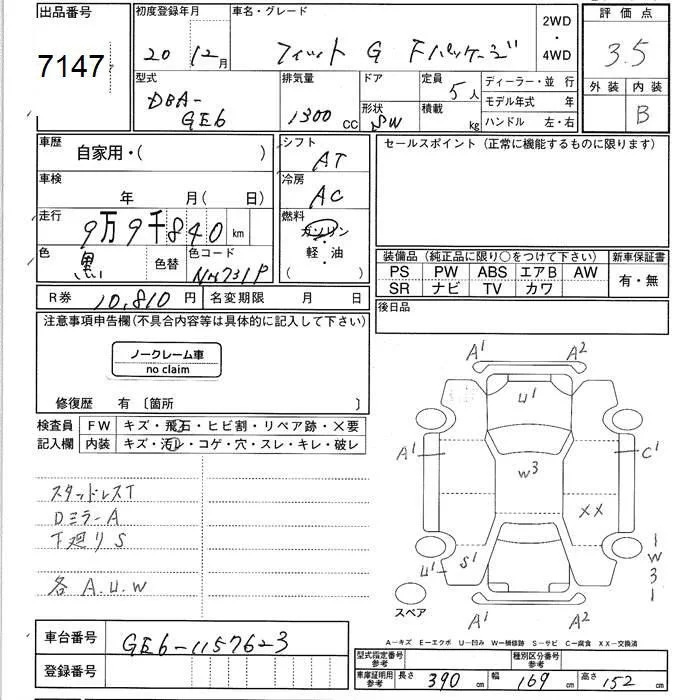 出品番号
7147
初度登録年月
20年12月
車名・グレード
フィット G Fパッケージ
2WD
・
4WD
評価点
3.5
外装 内装
B
型式
DBA-
GE6
排気量
1300 CC
ドア
形状
SW
定員
5人
積載
kg
ディーラー・並行
モデル年式 年
ハンドル 左・右
車歴
自家用・( )
シフト
AT
セールスポイント (正常に機能するものに限ります)
車検
年 月( 日)
冷房
AC
走行
9万9千840km
燃料
ガソリン
・
軽油
( )
色
黒
色替
色コード
NH731P
装備品 (純正品に限り○をつけて下さい)
新車保証書
PS PW ABS エアB AW
SR ナビ TV カワ
有・無
R券 10,810円
名変期限 月 日
後日品
注意事項申告欄(不具合内容等は具体的に記入して下さい)
ノークレーム車
no claim
修復歴 有 〔箇所 〕
検査員
記入欄
FW キズ・飛石・ヒビ割・リペア跡・×要
内装 キズ・汚レ・コゲ・穴・スレ・キレ・破レ
スタッドレスT
Dミラー A
下廻り S
各 A.U.W
A1 A2
U1
A1
C1
W3
XX
S1
U1
1
W
3
1
A1 A2
スペア
A-キズ E-エクボ U-凹み W-補修跡 S-サビ C-腐食 XX-交換済
車台番号
GE6-1157623
登録番号
型式指定番号
参考
種別区分番号
参考
車庫証明用
参考
長さ 390cm 幅 169cm 高さ 152cm